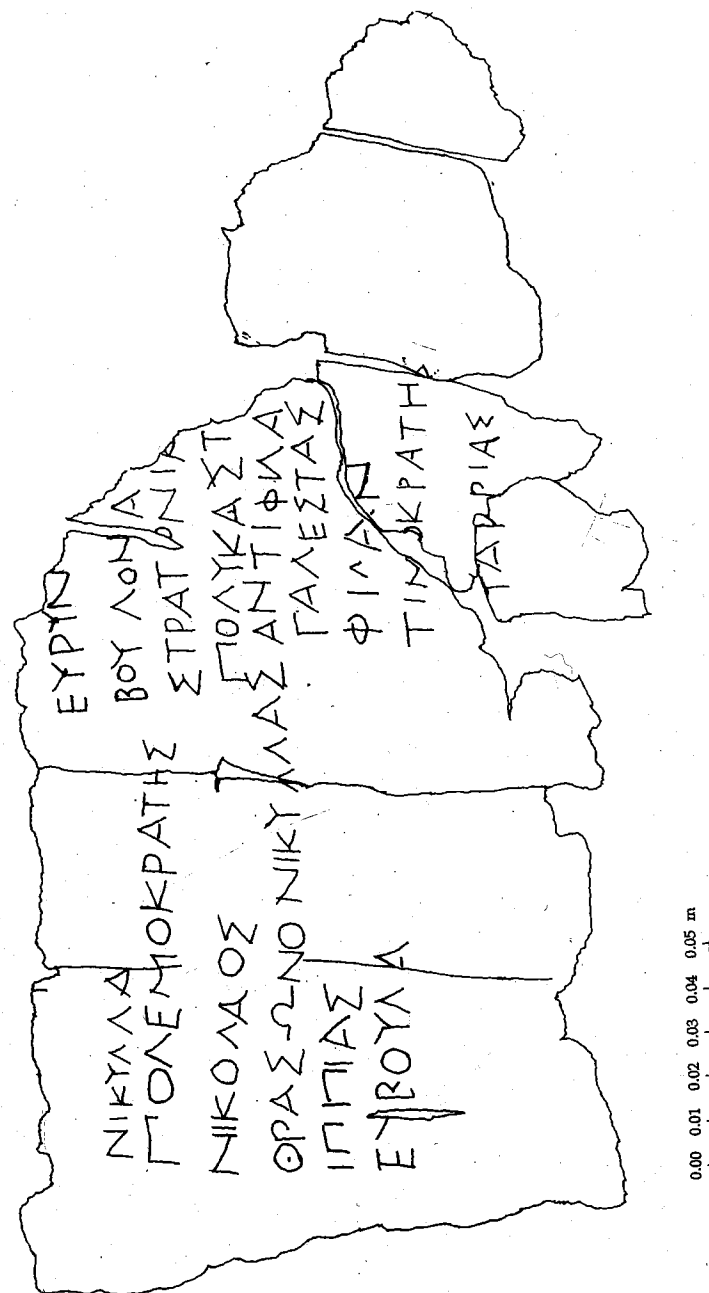 ΝΙΚΥΛΛΑ
ΠΟΛΕΜΟΚΡΑΤΗΣ
ΝΙΚΟΛΑΟΣ
ΘΡΑΣΩΝΟΝΙΚΥΛΛΑΣ
ΙΠΠΙΑΣ
ΕΥΒΟΥΛΑ
ΕΥΡΥΝ
ΣΤΡΑΤΟΝΙΚ
ΠΟΛΥΚΑΣΤ
ΑΝΤΙΦΙΛΑ
ΓΑΛΕΣΤΑΣ
ΦΙΛΑΝ
ΤΙΜΟΚΡΑΤΗΣ
ΤΑΡΡΙΑΣ
0.00 0.01 0.02 0.03 0.04 0.05 m